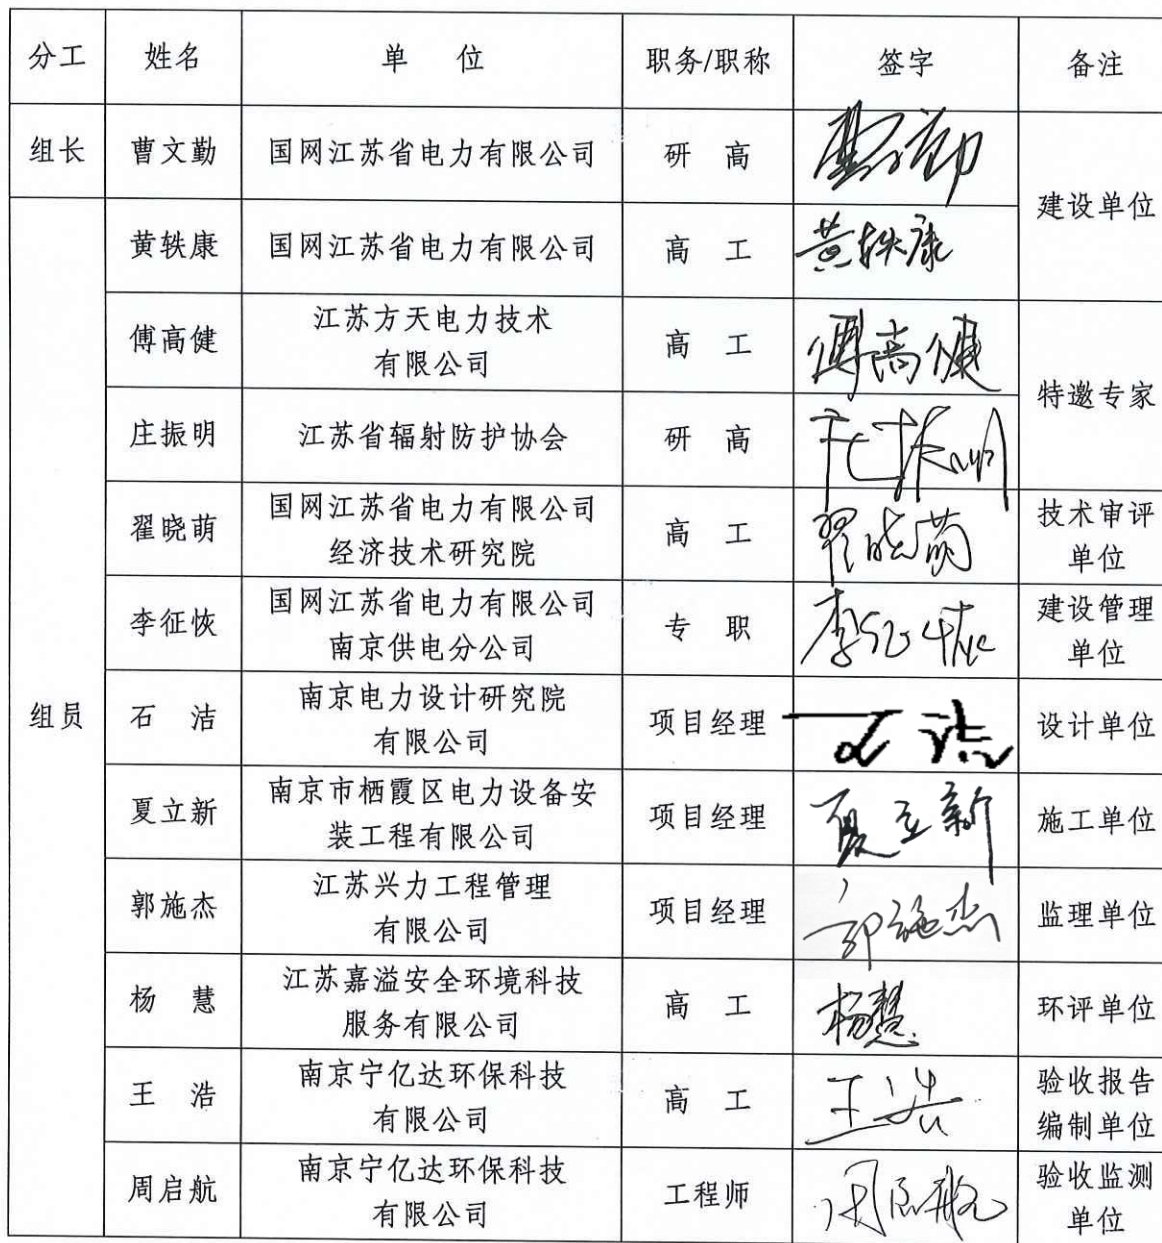 分工 姓名 单 位 职务/职称 签字 备注
组长 曹文勤 国网江苏省电力有限公司 研 高 曹文勤
建设单位
黄轶康 国网江苏省电力有限公司 高 工 黄轶康
傅高健 江苏方天电力技术
有限公司 高 工 傅高健
特邀专家
庄振明 江苏省辐射防护协会 研 高 庄振明
翟晓萌 国网江苏省电力有限公司
经济技术研究院 高 工 翟晓萌 技术审评
单位
李征恢 国网江苏省电力有限公司
南京供电分公司 专 职 李征恢 建设管理
单位
组员 石 洁 南京电力设计研究院
有限公司 项目经理 石洁 设计单位
夏立新 南京市栖霞区电力设备安
装工程有限公司 项目经理 夏立新 施工单位
郭施杰 江苏兴力工程管理
有限公司 项目经理 郭施杰 监理单位
杨 慧 江苏嘉溢安全环境科技
服务有限公司 高 工 杨慧 环评单位
王 浩 南京宁亿达环保科技
有限公司 高 工 王浩 验收报告
编制单位
周启航 南京宁亿达环保科技
有限公司 工程师 周启航 验收监测
单位